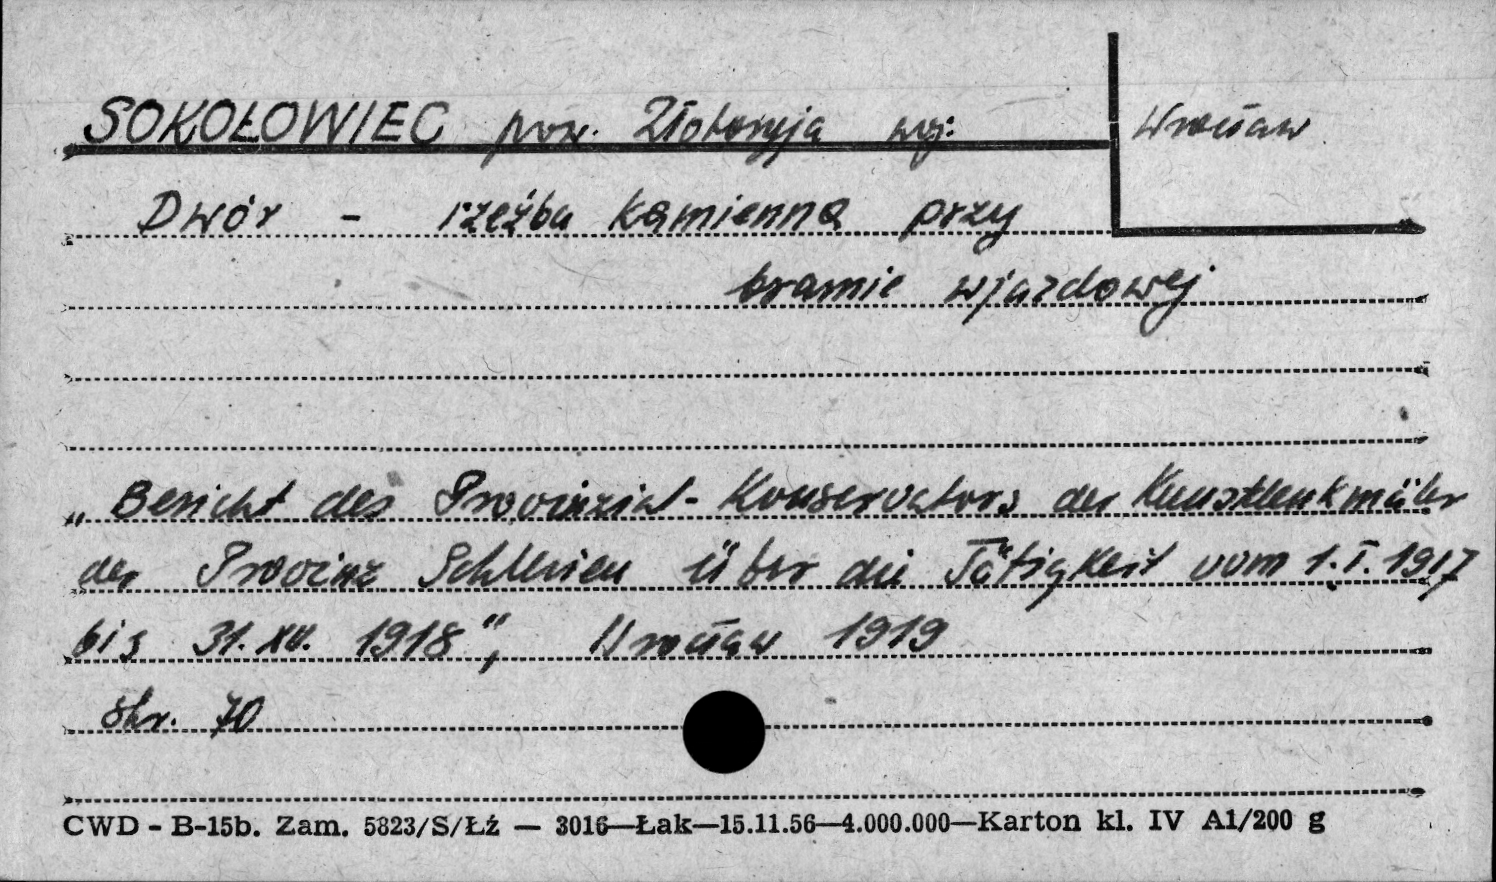 SOKOŁOWIEC pow. Złotoryja woj: Wrocław
Dwór - rzeźba kamienna przy
bramie wjazdowej
„Bericht des Provinzial-Konservators der Kunstdenkmäler
der Provinz Schlesien über die Tätigkeit vom 1.I.1917
bis 31.XII. 1918", Wrocław 1919
str. 70
CWD - B-15b. Zam. 5823/S/Łź — 3016—Łak—15.11.56—4.000.000—Karton kl. IV A1/200 g